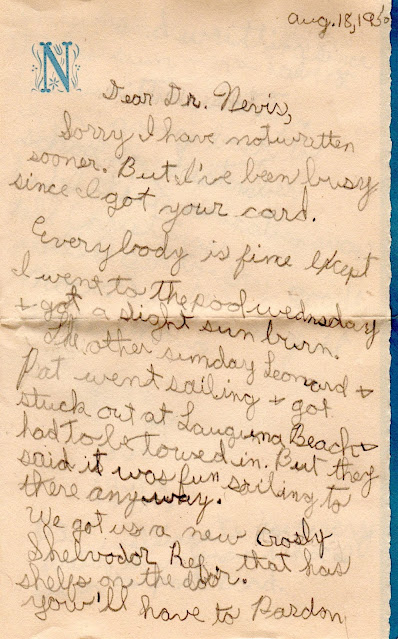 Aug. 18, 1950
N
Dear Dr. Nevis,
Sorry I have not written
sooner. But I've been busy
since I got your card.
Everybody is fine except
I went to the pool wednsday
+ got a slight sun burn.
The other sunday Leonard +
Pat went sailing + got
stuck out at Lauguna Beach +
had to be towed in. But they
said it was fun sailing to
there anyway.
We got us a new Crosly
Shelvador Refir. that has
shelfs on the door.
You'll have to Pardon